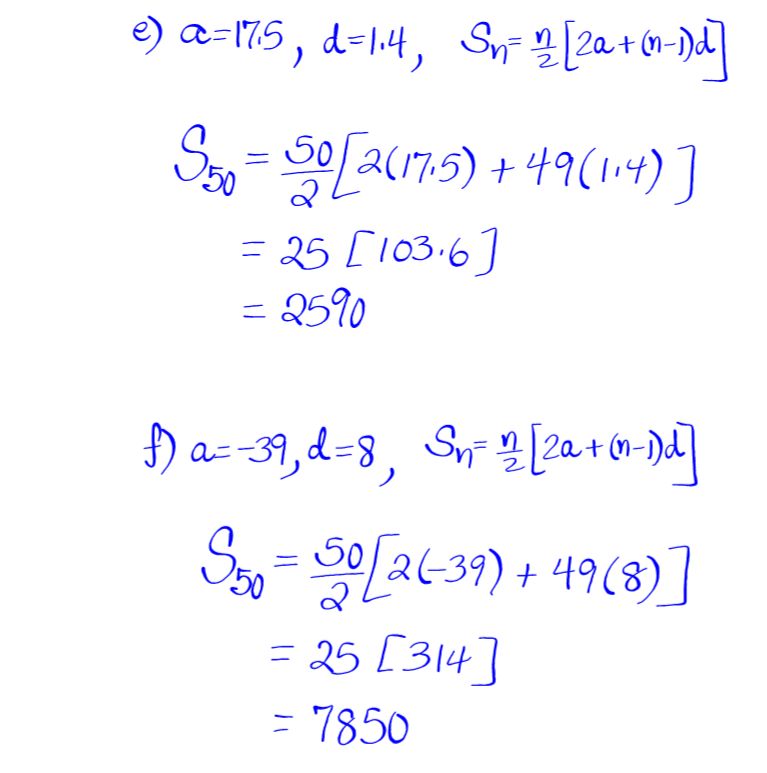 e) a=17.5, d=1.4, Sₙ= n/2[2a+(n-1)d]
S₅₀ = 50/2[2(17.5) + 49(1.4)]
= 25 [103.6]
= 2590
f) a=-39, d=8, Sₙ= n/2[2a+(n-1)d]
S₅₀ = 50/2[2(-39) + 49(8)]
= 25 [314]
= 7850